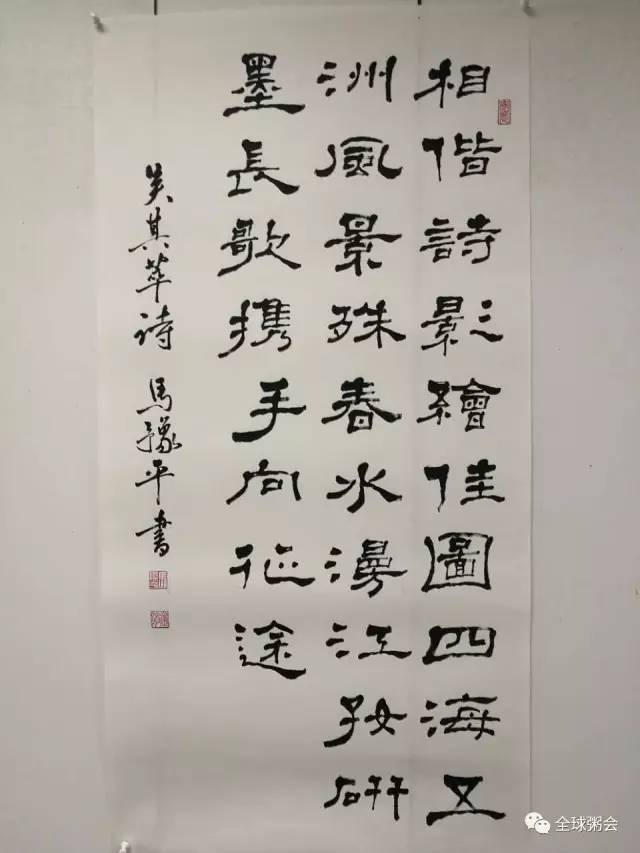 相偕詩影繪佳圖四海五
洲風景殊春水漫江好研
墨長歌携手向征途
吴其萃诗 馬豫平書
全球粥会